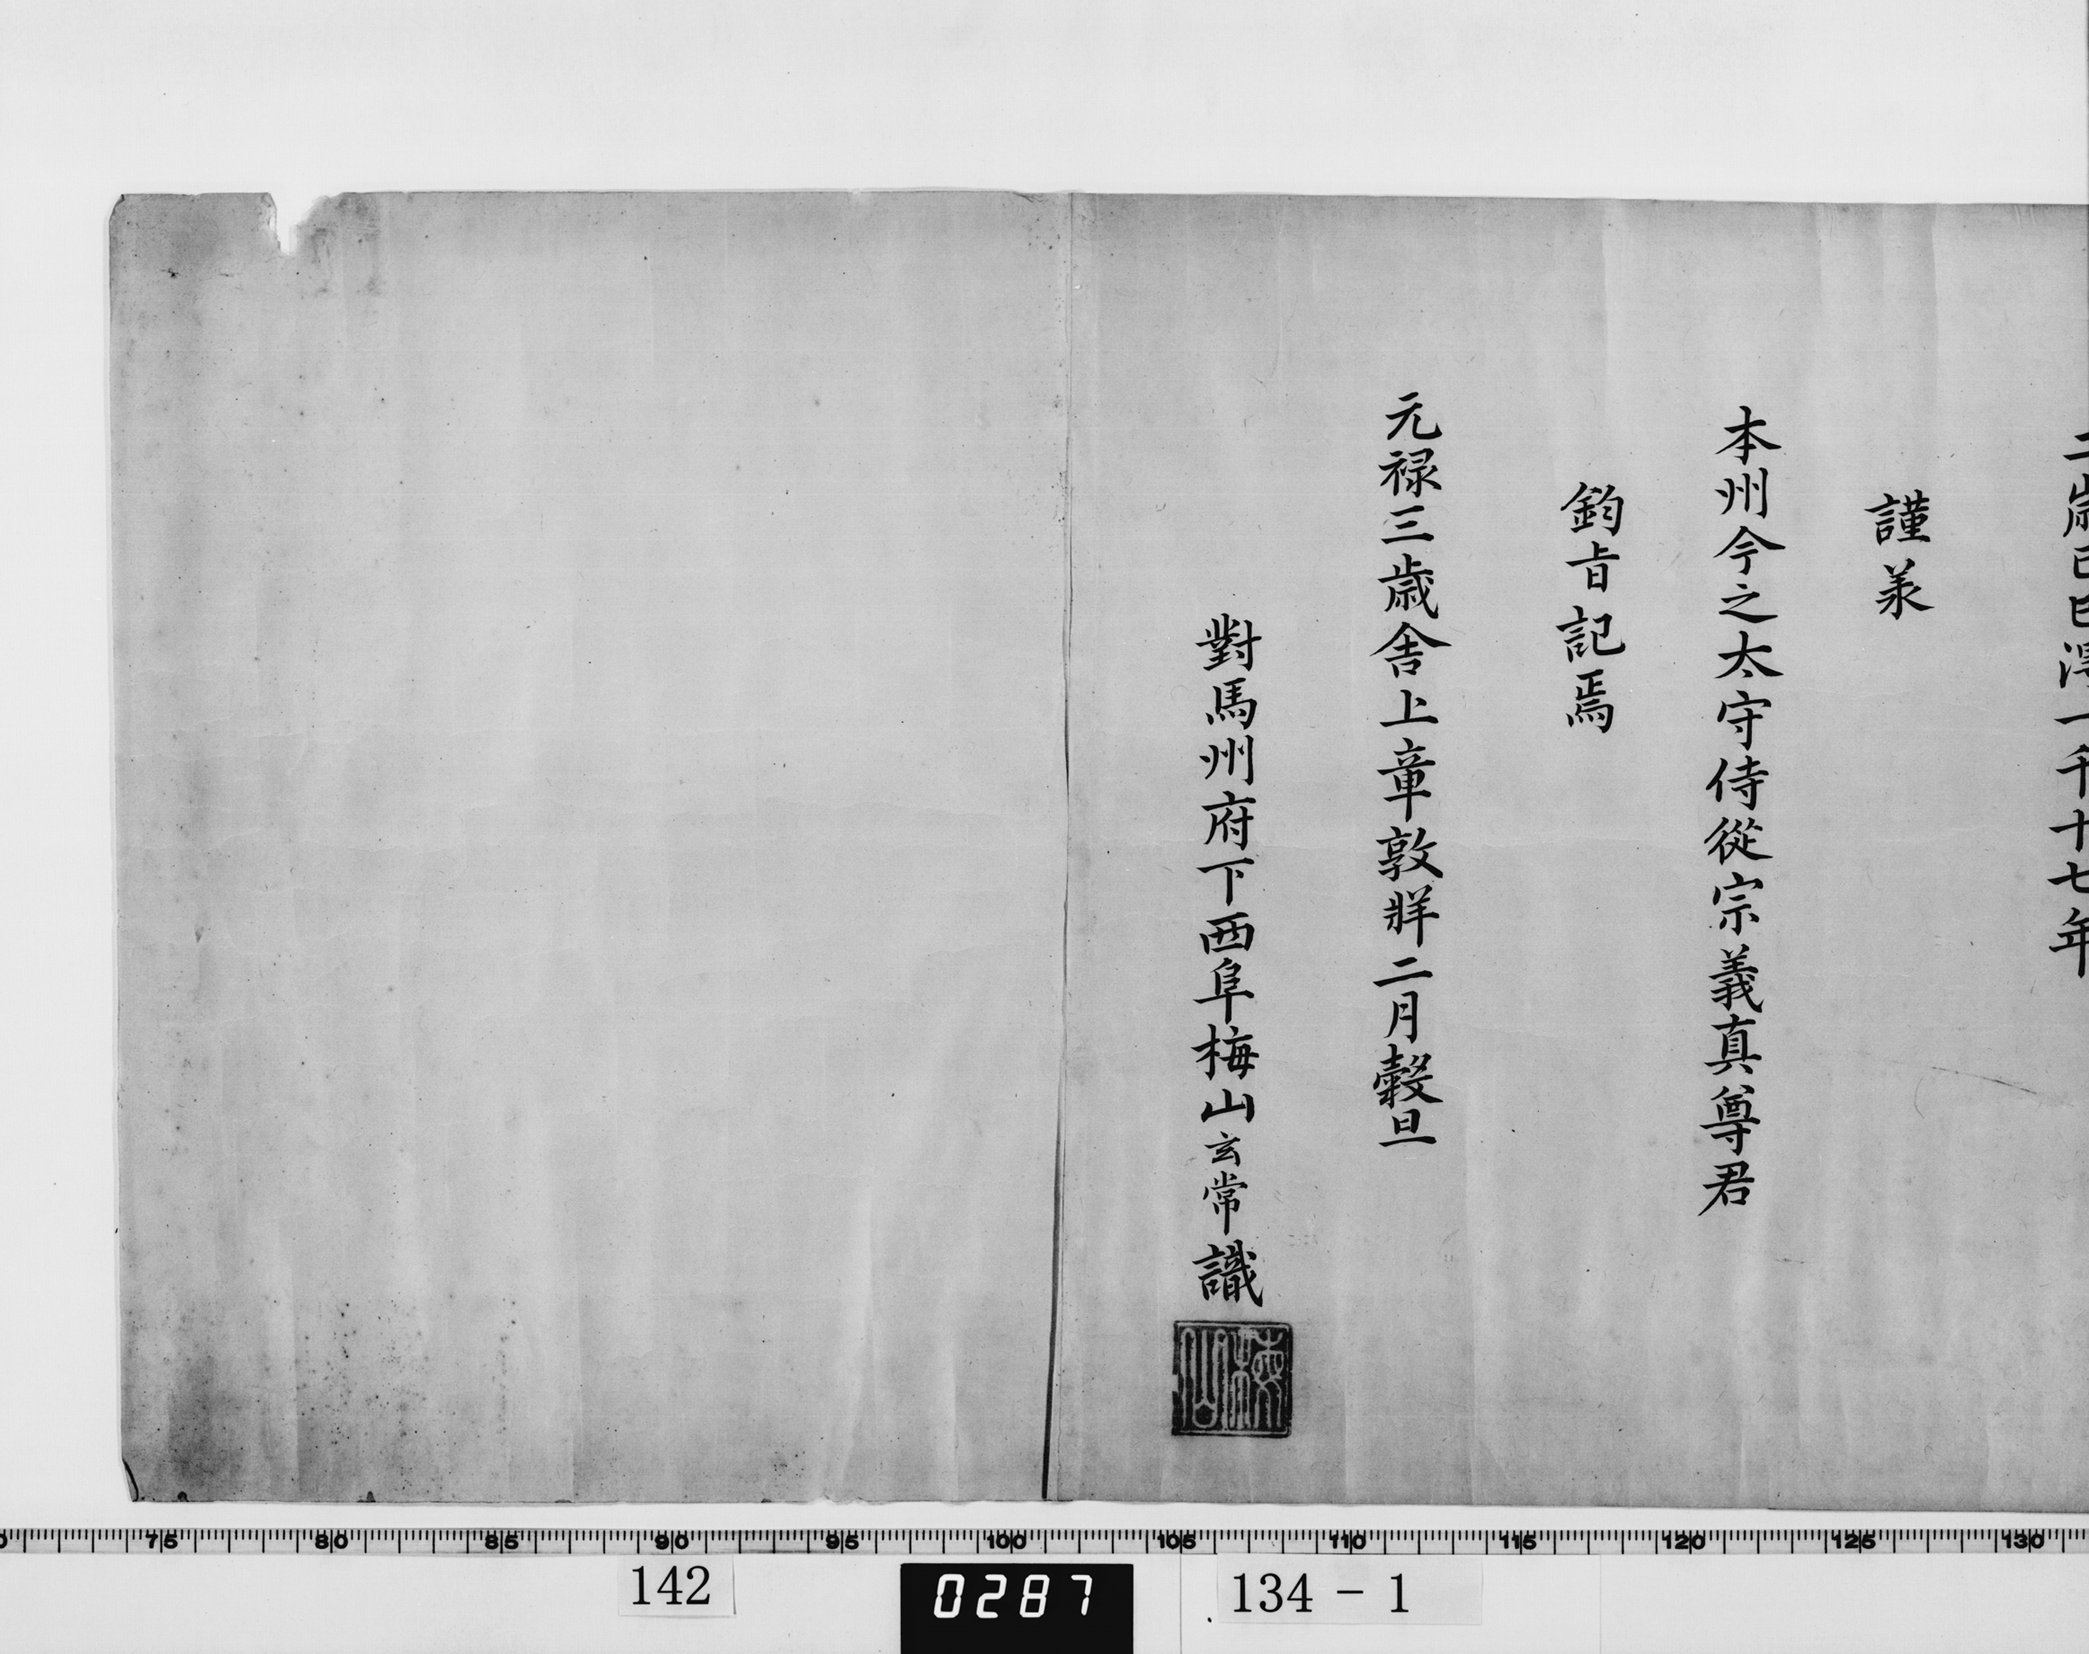 二歳己巳得一千十七年
謹承
本州今之太守侍從宗義真尊君
鈞旨記焉
元禄三歳舎上章敦牂二月穀旦
對馬州府下西阜梅山玄常識
梅山
75 80 85 90 95 100 105 110 115 120 125 130
142
0287
134-1